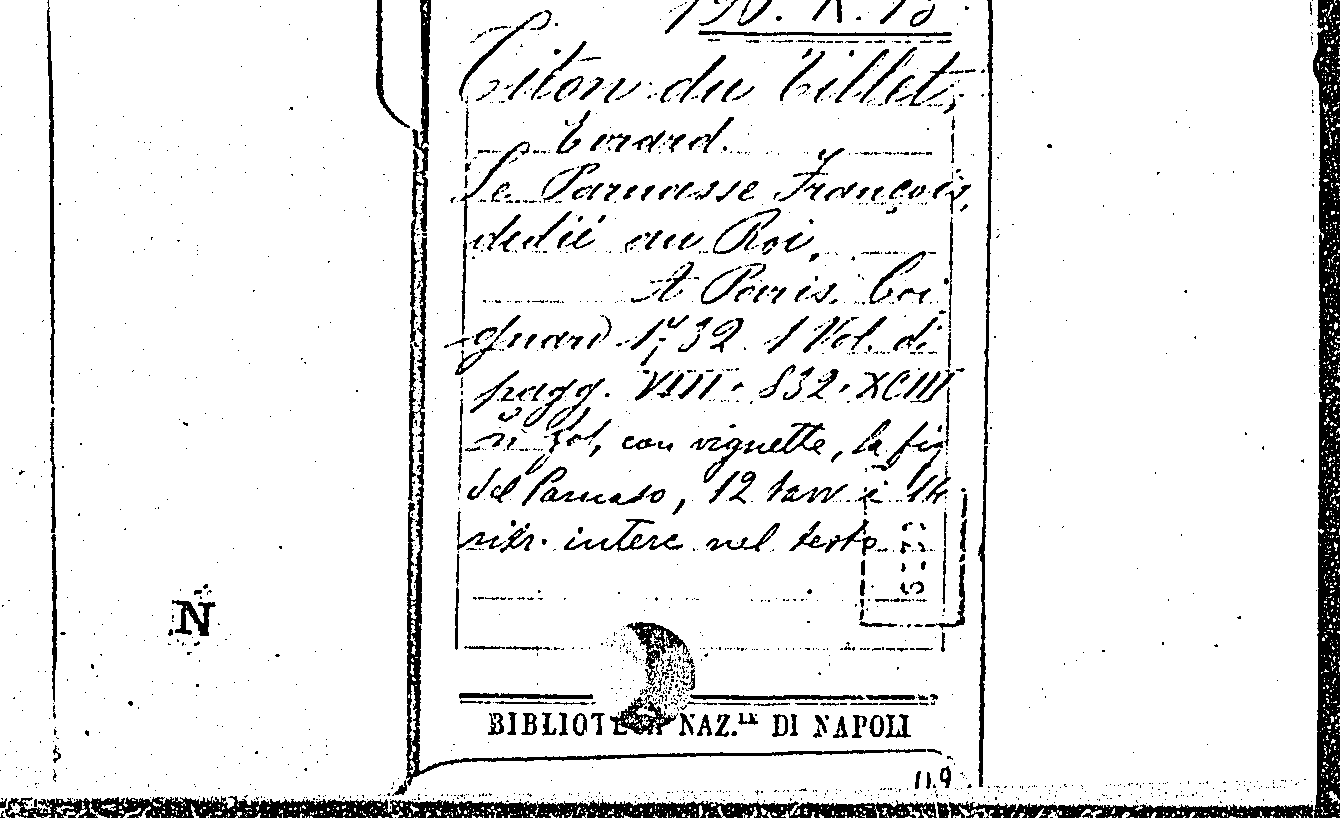 190. K. 13
Titon du Tillet,
Evrard.
Le Parnasse François,
dedié au Roi,
A Paris. Coi
gnard 1732. 1 Vol. di
pagg. VIII. 832. XCIII
in fol, con vignette, la fig
del Parnaso, 12 tavv e 14
ritr. interc nel testo
N
BIBLIOTECA NAZ.LE DI NAPOLI